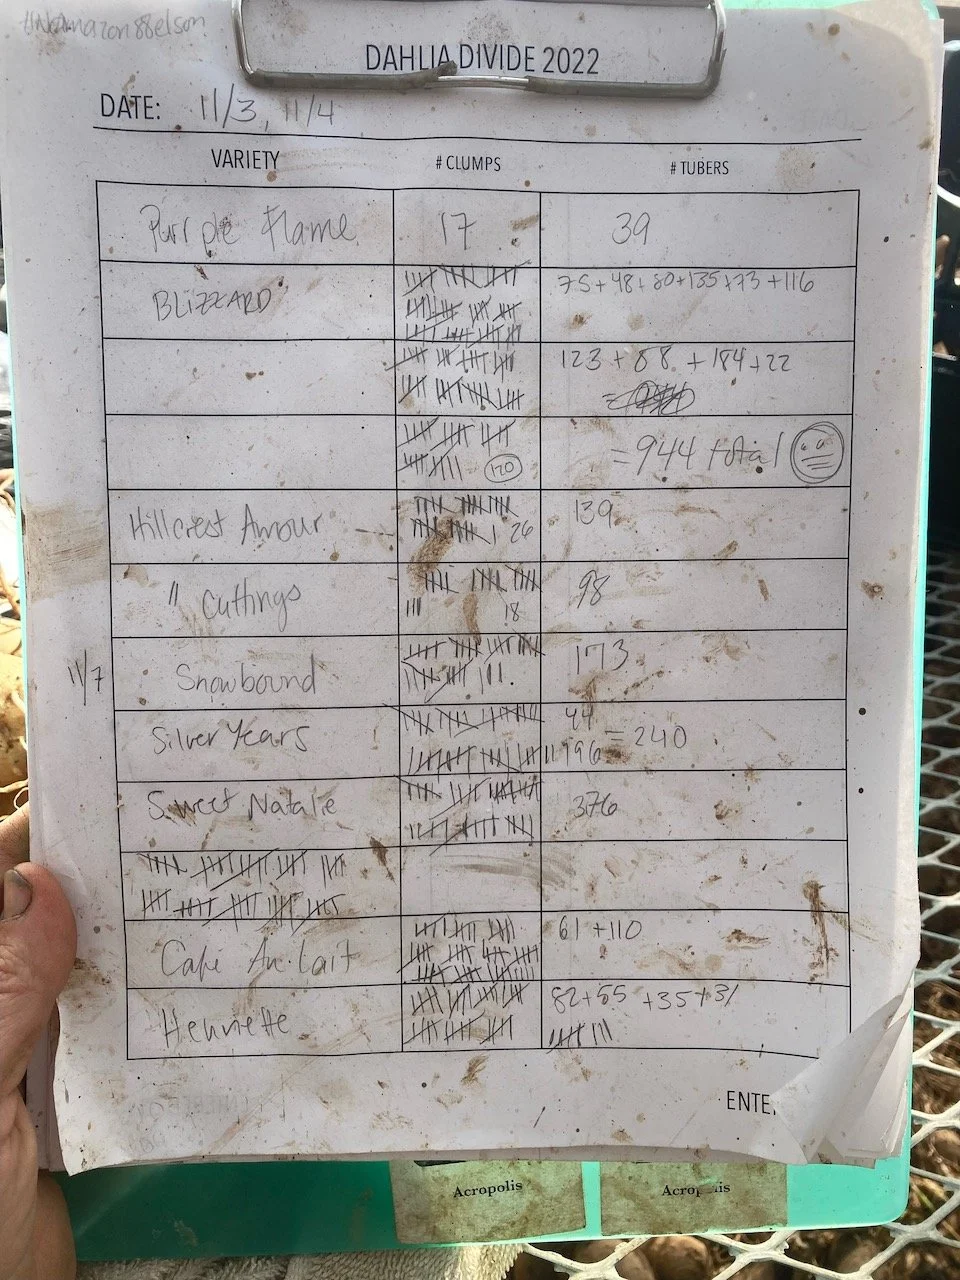 DAHLIA DIVIDE 2022
DATE: 11/3, 11/4
VARIETY # CLUMPS # TUBERS
Purrple Flame 17 39
BLIZZARD 75+48+80+135+73+116
123 + 88 + 184+22
120 =944 total
Hillcrest Amour 26 139
" Cuttings 18 98
11/7 Snowbound 173
Silver Years 44
196 = 240
Sweet Natalie 376
Cafe Au Lait 61 +110
Henriette 82+55 +35+31
ENTE
Acropolis Acropolis